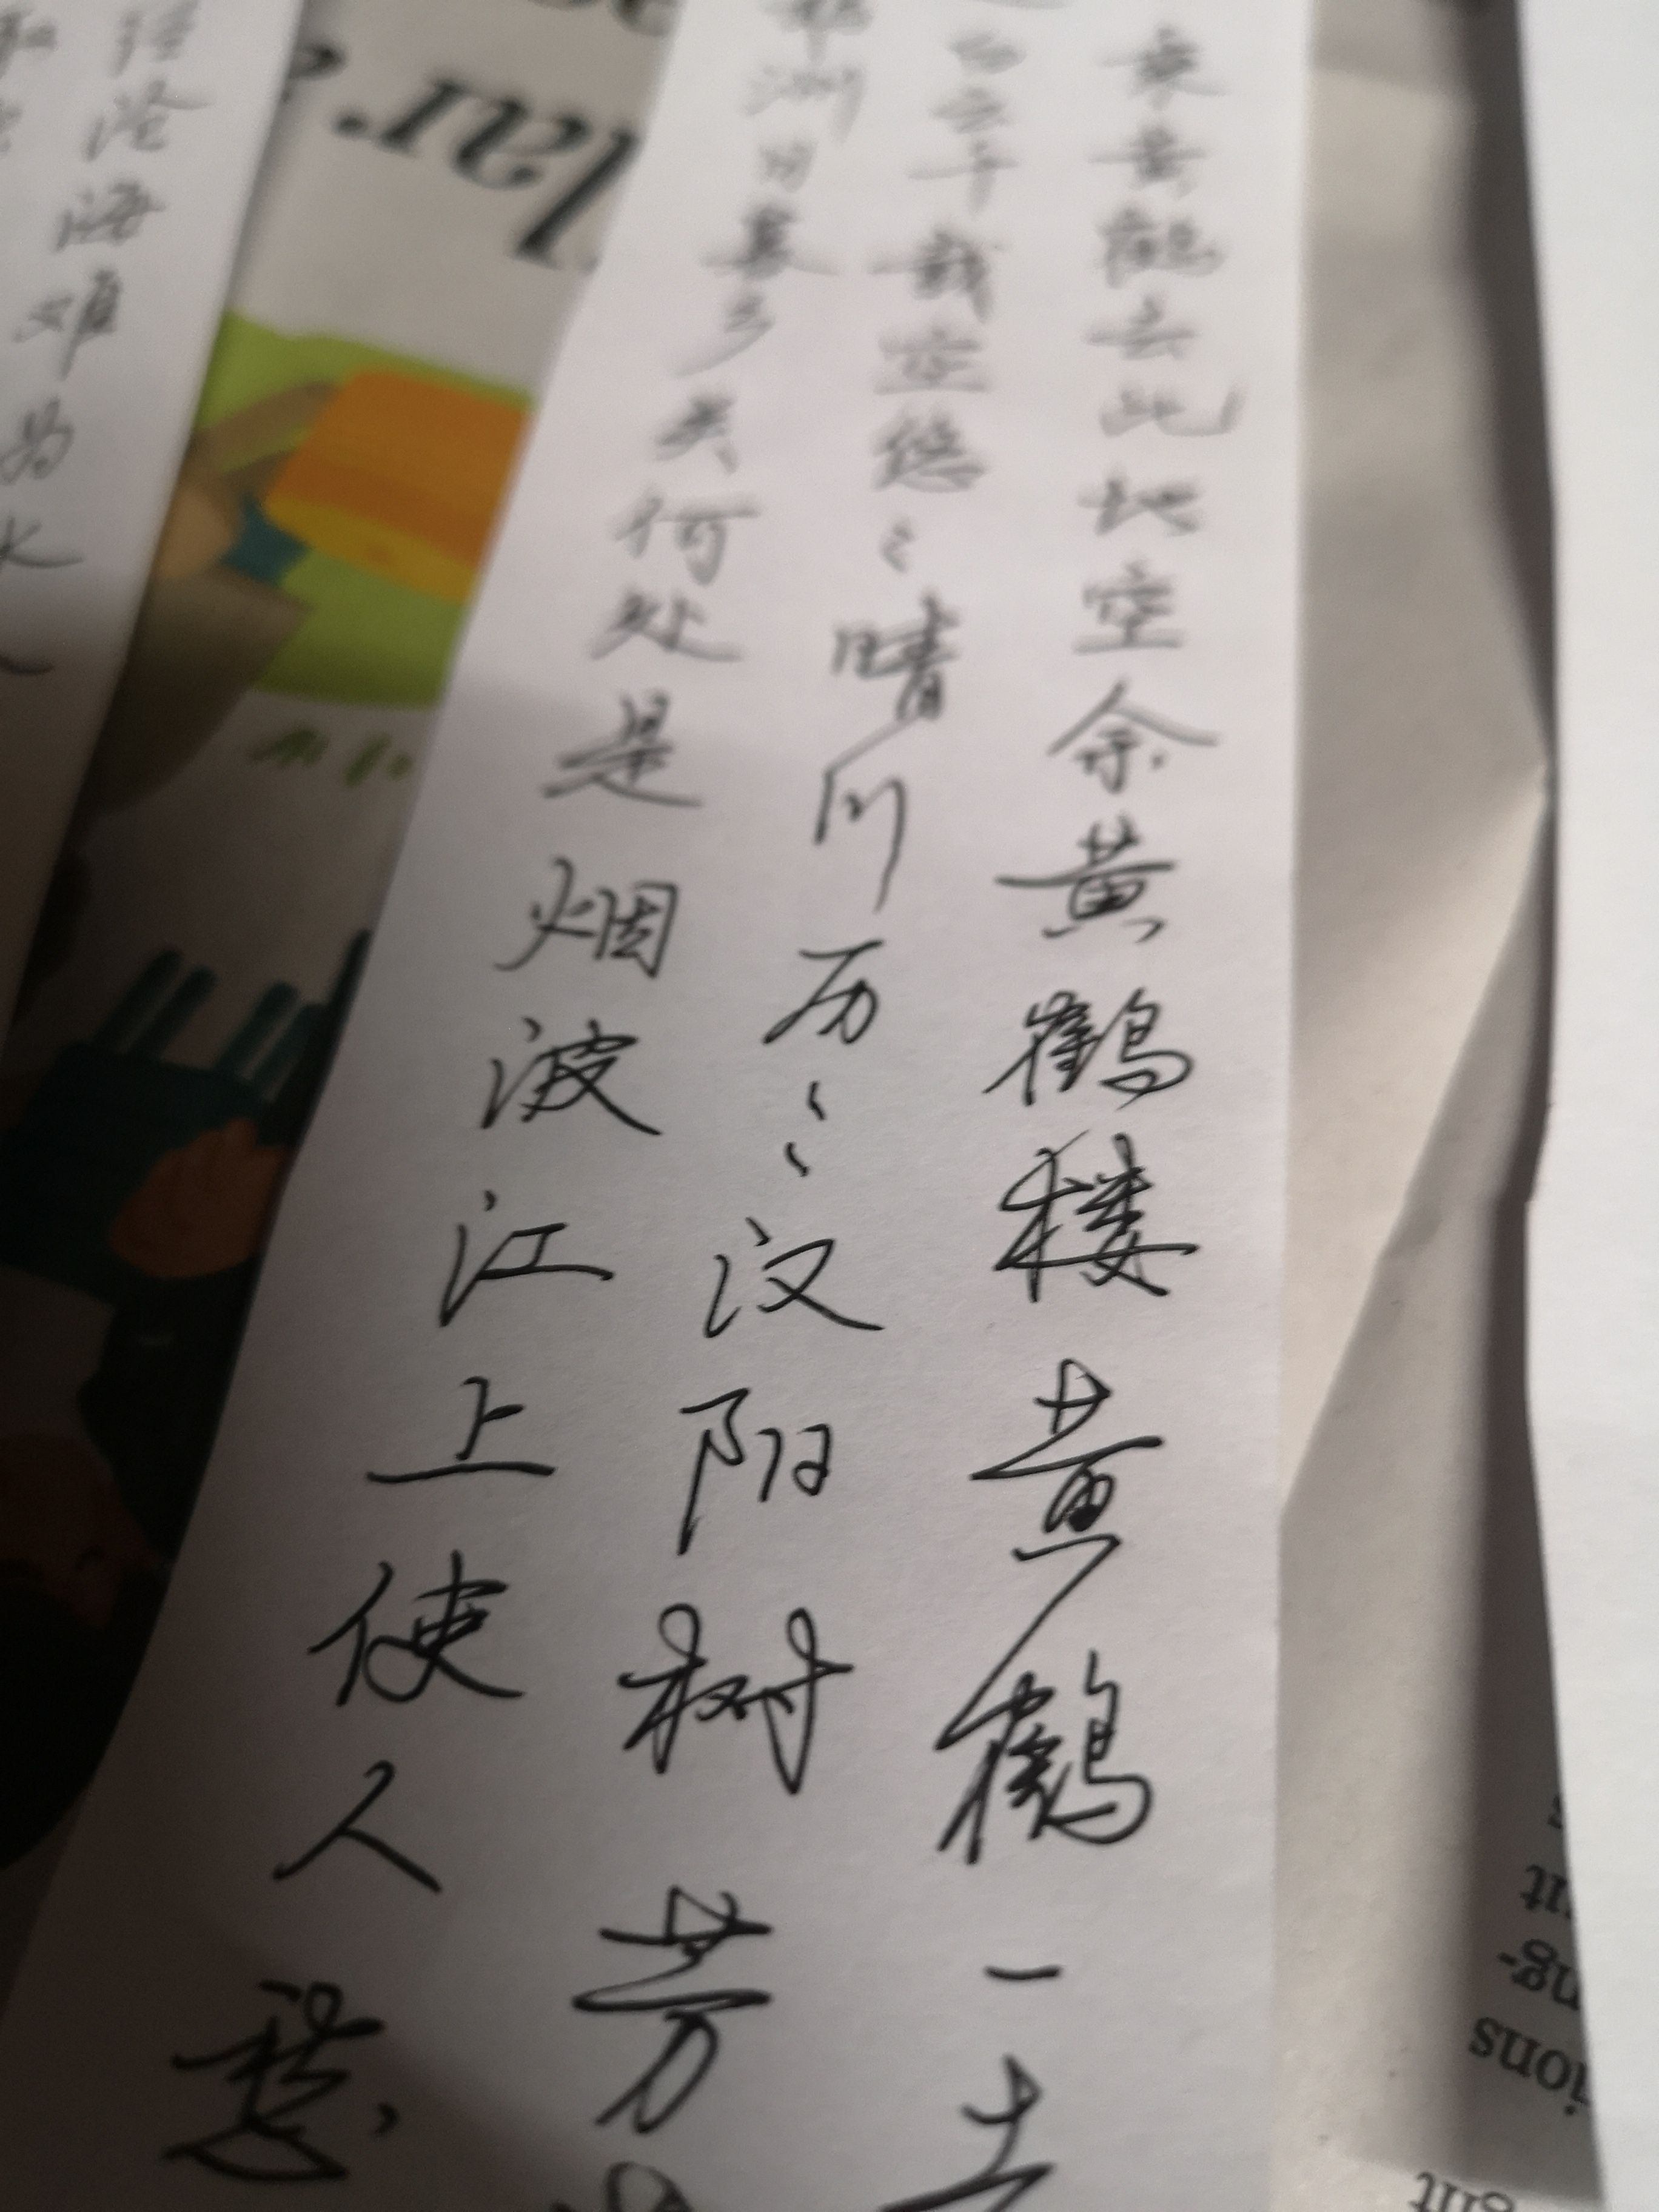 乘黄鹤去此地空余黄鹤楼黄鹤一去
白云千载空悠々晴川历々汉阳树芳
洲日暮乡关何处是烟波江上使人愁
经沧海难为水
lar
ng-
ions